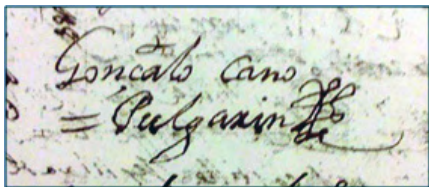 Gonçalo Cano
= Pulgarin